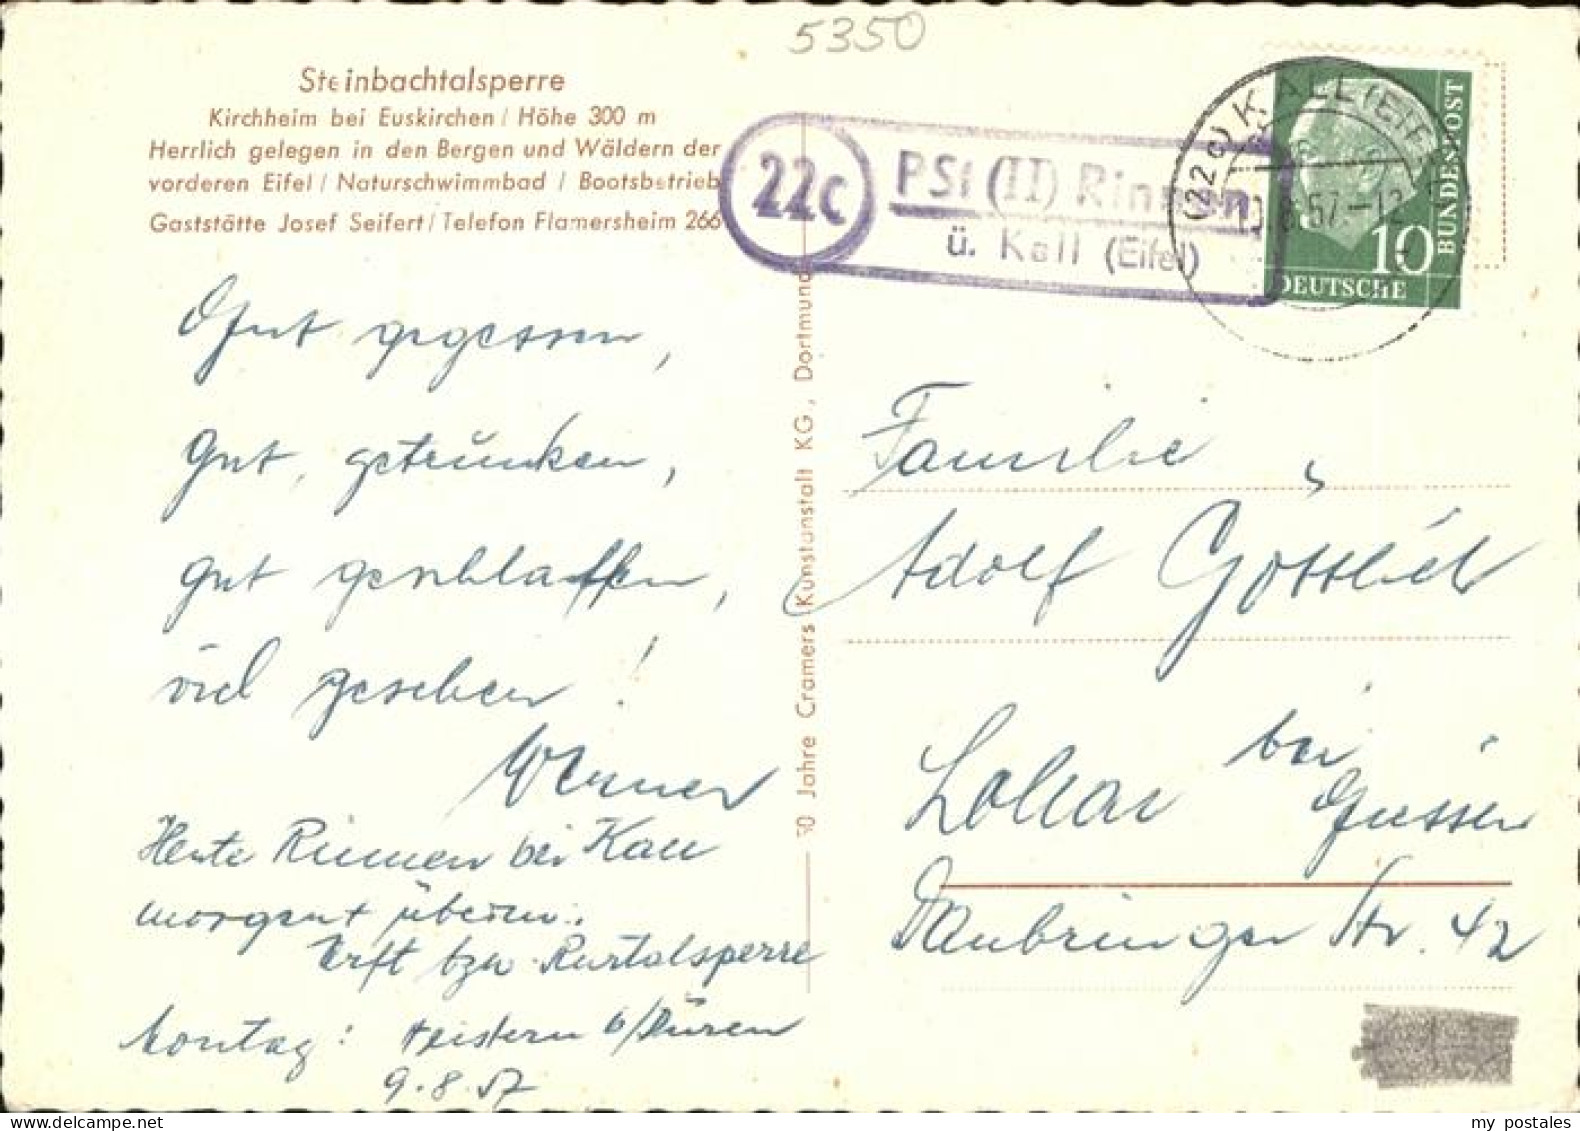 5350
Steinbachtalsperre
Kirchheim bei Euskirchen / Höhe 300 m
Herrlich gelegen in den Bergen und Wäldern der
vorderen Eifel / Naturschwimmbad / Bootsbetrieb
Gaststätte Josef Seifert / Telefon Flamersheim 266
22c
PSt (II) Rinnen
ü. Kall (Eifel)
(22c) KALL (EIFEL)
8.57.-12
10
DEUTSCHE
BUNDESPOST
Gut gegessen,
Gut, getrunken,
gut geschlaffen,
viel gesehen!
Werner
Heute Rinnen bei Kall
morgen
Erft bzw. Rurtalsperre
Montag: b/Düren
9.8.57
50 Jahre Cramers Kunstanstalt KG, Dortmund
Familie
Adolf Göttlich
Lollar bei
Giessen
Daubringer Str. 42
my postales